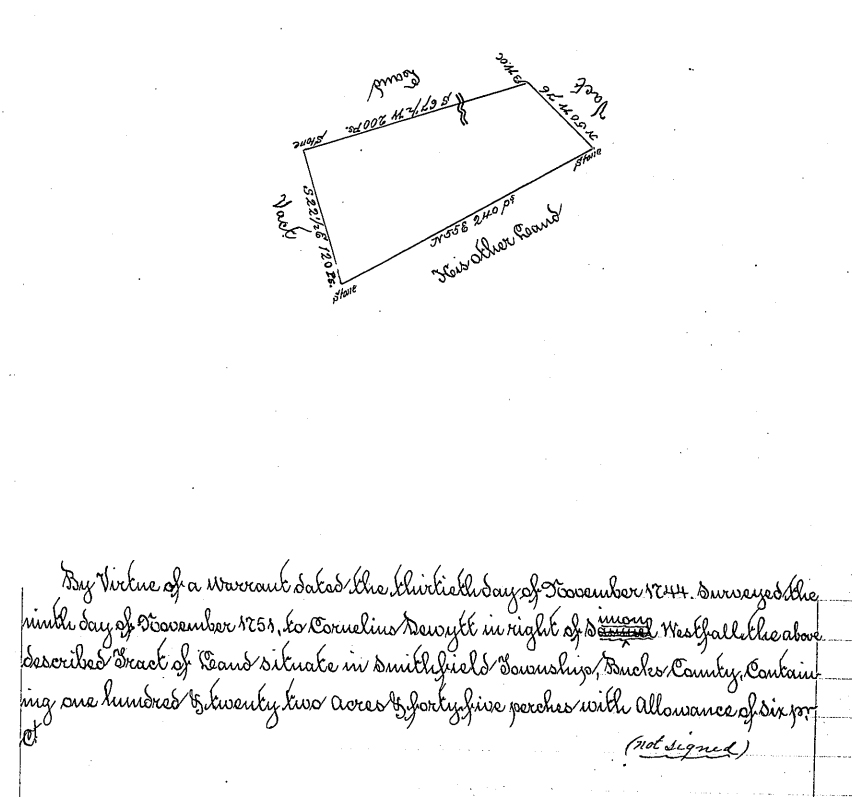 Land
B W. Oc
Vact
S 67 1/2 W 200 Ps.
N 50 W 76
Stone
Stone
Vact.
S 22 1/2 E 120 Ps.
N 55 E 240 Ps
His other Land
Stone
By Virtue of a Warrant dated the thirtieth day of November 1744. Surveyed the
ninth day of November 1751, to Cornelius Dewytt in right of Simony Westfall, the above
described Tract of Land situate in Smithfield Township, Bucks County, Contain-
ing one hundred & twenty two Acres & forty five perches with Allowance of Six pr.
Ct
(not signed)